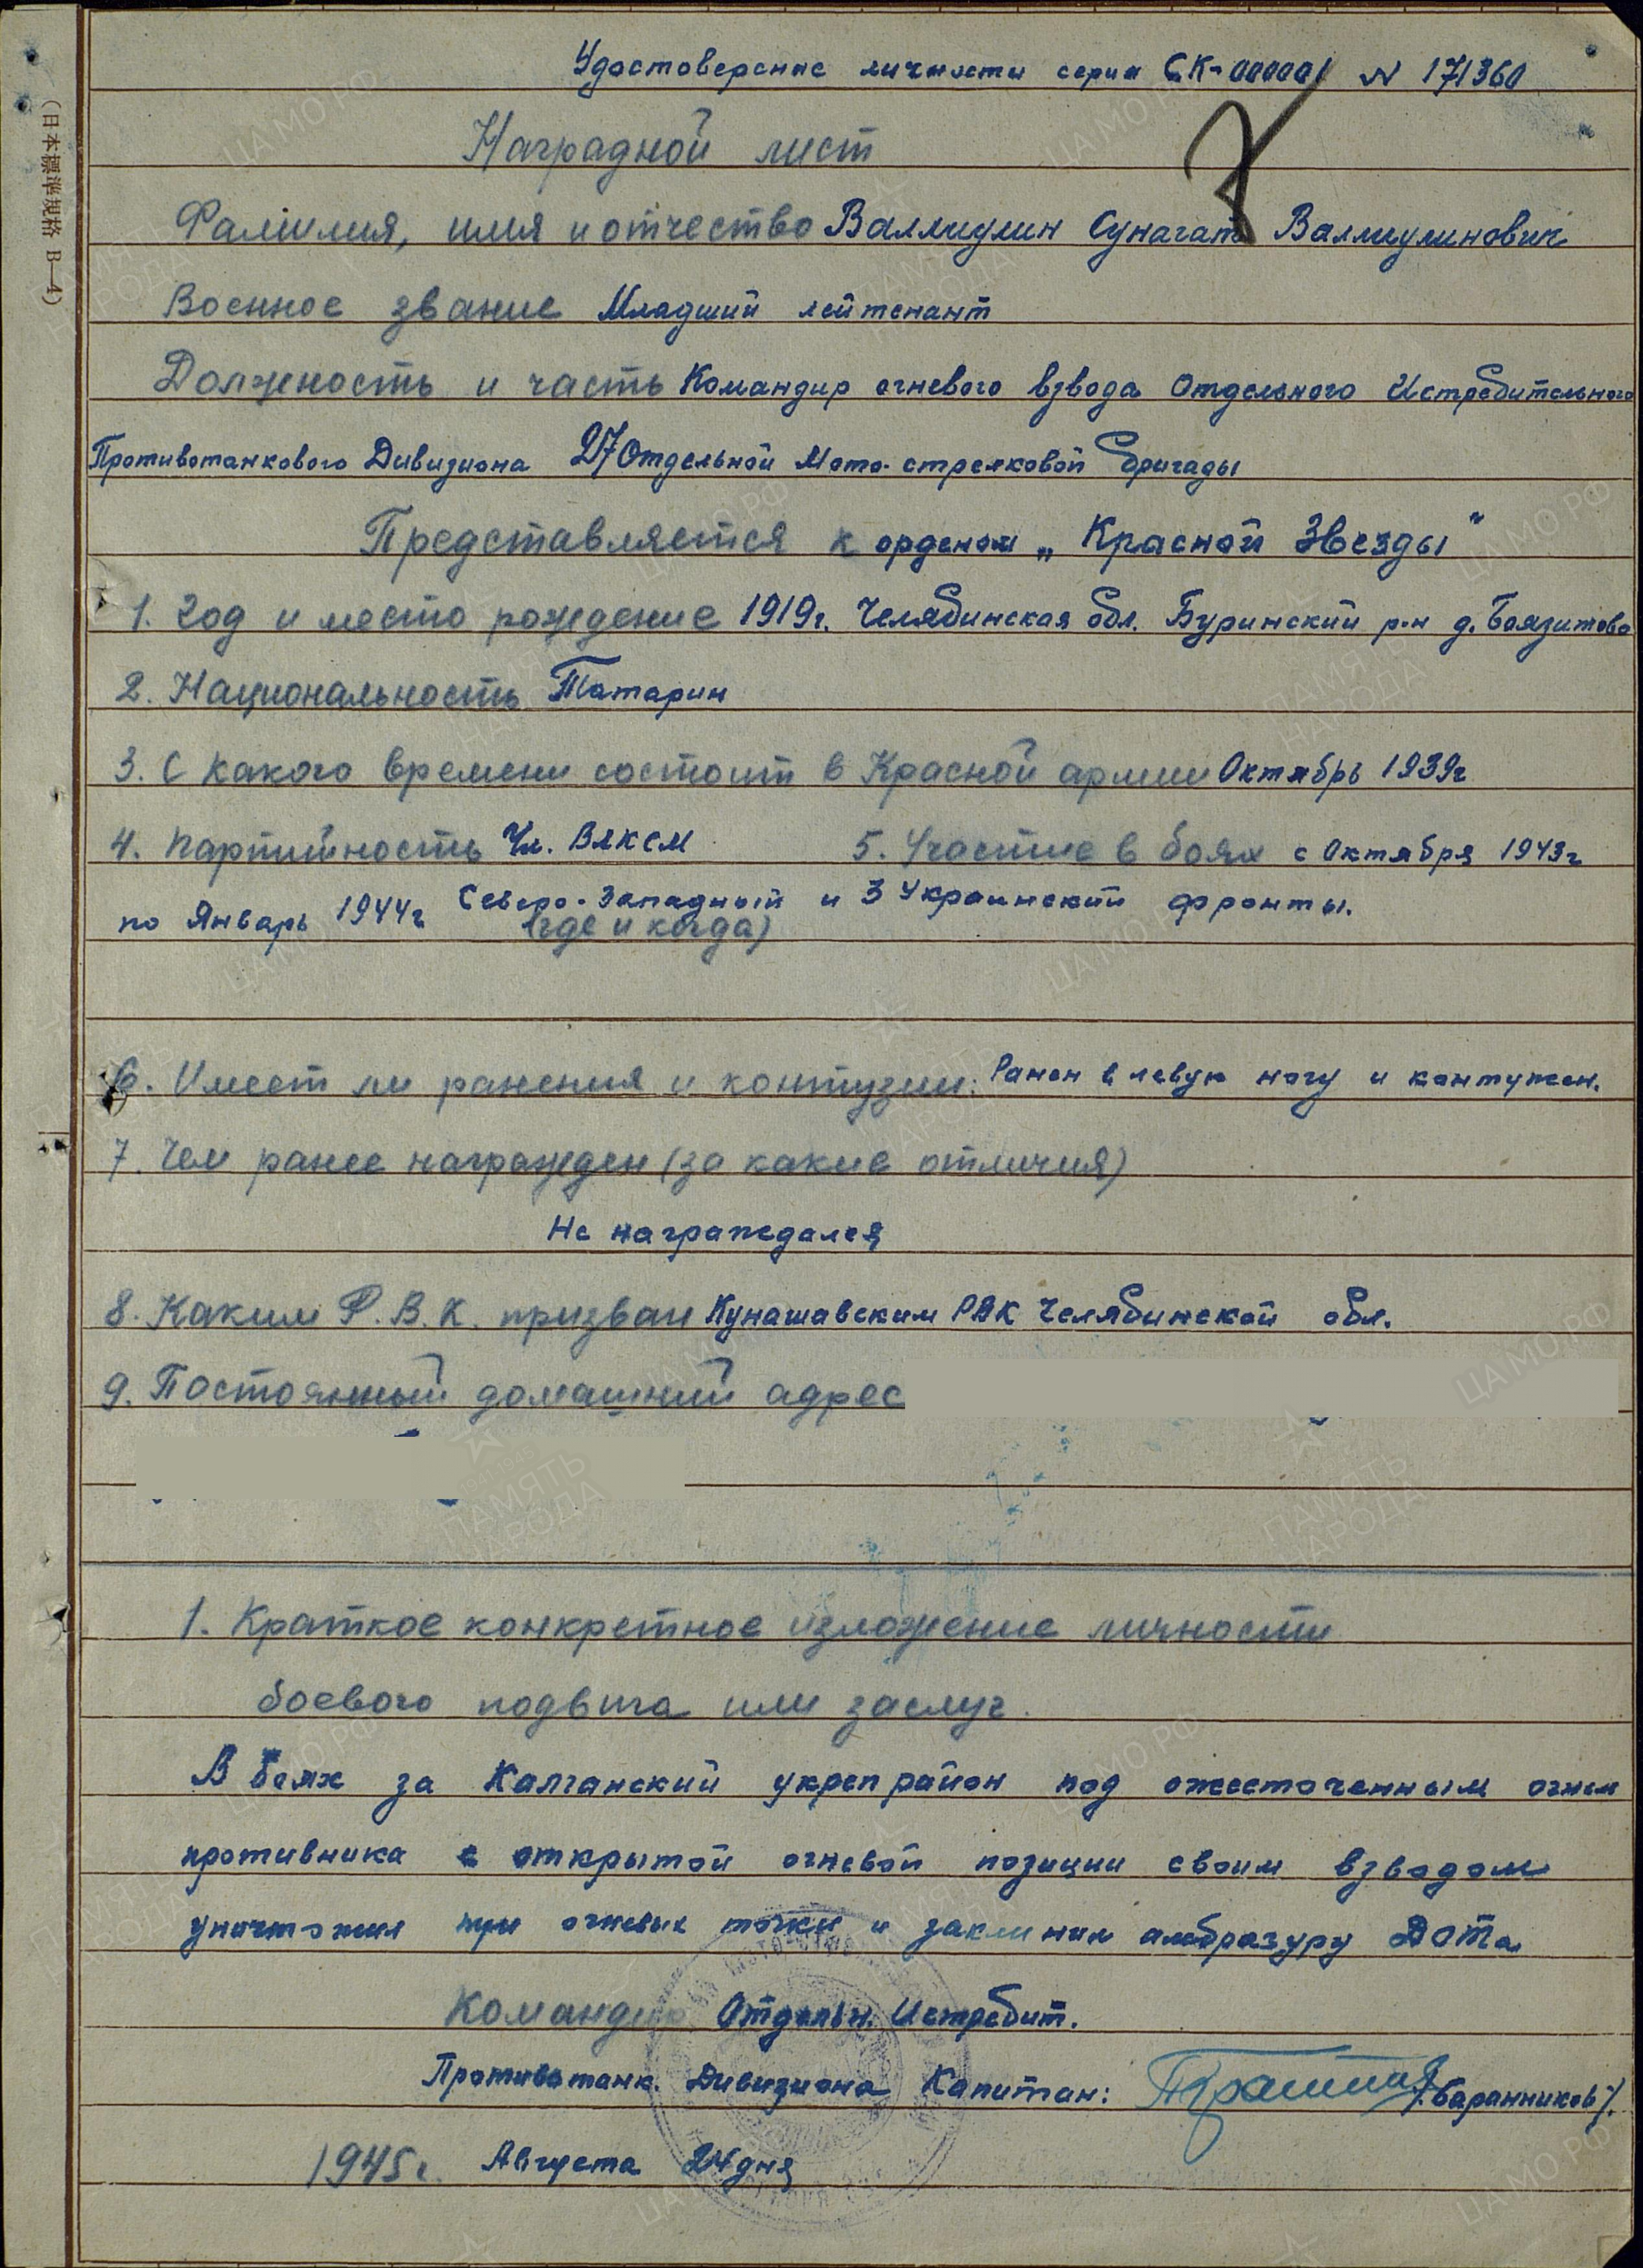 Удостоверение личности серия СК-000001 N 171360
Наградной лист
Фамилия, имя и отчество Валлиулин Сунагат Валлиулинович
Военное звание Младший лейтенант
Должность и часть Командир огневого взвода Отдельного Истребительного
Противотанкового Дивизиона 27 Отдельной Мото-стрелковой бригады
Представляется к орденом „Красной Звезды"
1. Год и место рождение 1919г. Челябинская обл. Буринский р-н д. Баязитово
2. Национальность Татарин
3. С какого времени состоит в Красной армии Октябрь 1939г
4. Партийность Чл. ВЛКСМ 5. Участие в боях с Октября 1943г
по Январь 1944г Северо-Западный и 3 Украинский фронты.
(где и когда)
6. Имеет ли ранения и контузии: Ранен в левую ногу и контужен.
7. Чем ранее награжден (за какие отличия)
Не награждался
8. Каким Р.В.К. призван Кунашавским РВК Челябинской обл.
9. Постоянный домашний адрес
1. Краткое конкретное изложение личности
боевого подвига или заслуг.
В боях за Халганский укрепрайон под ожесточенным огнем
противника с открытой огневой позиции своим взводом
уничтожил три огневых точки и заклинил амбразуру Дота
Командир Отдельн. Истребит.
Противотанк. Дивизиона Капитан: /Баранников/.
1945г. Августа 24 дня
(日本標準規格 B—4)
ЦАМО РФ
ПАМЯТЬ НАРОДА